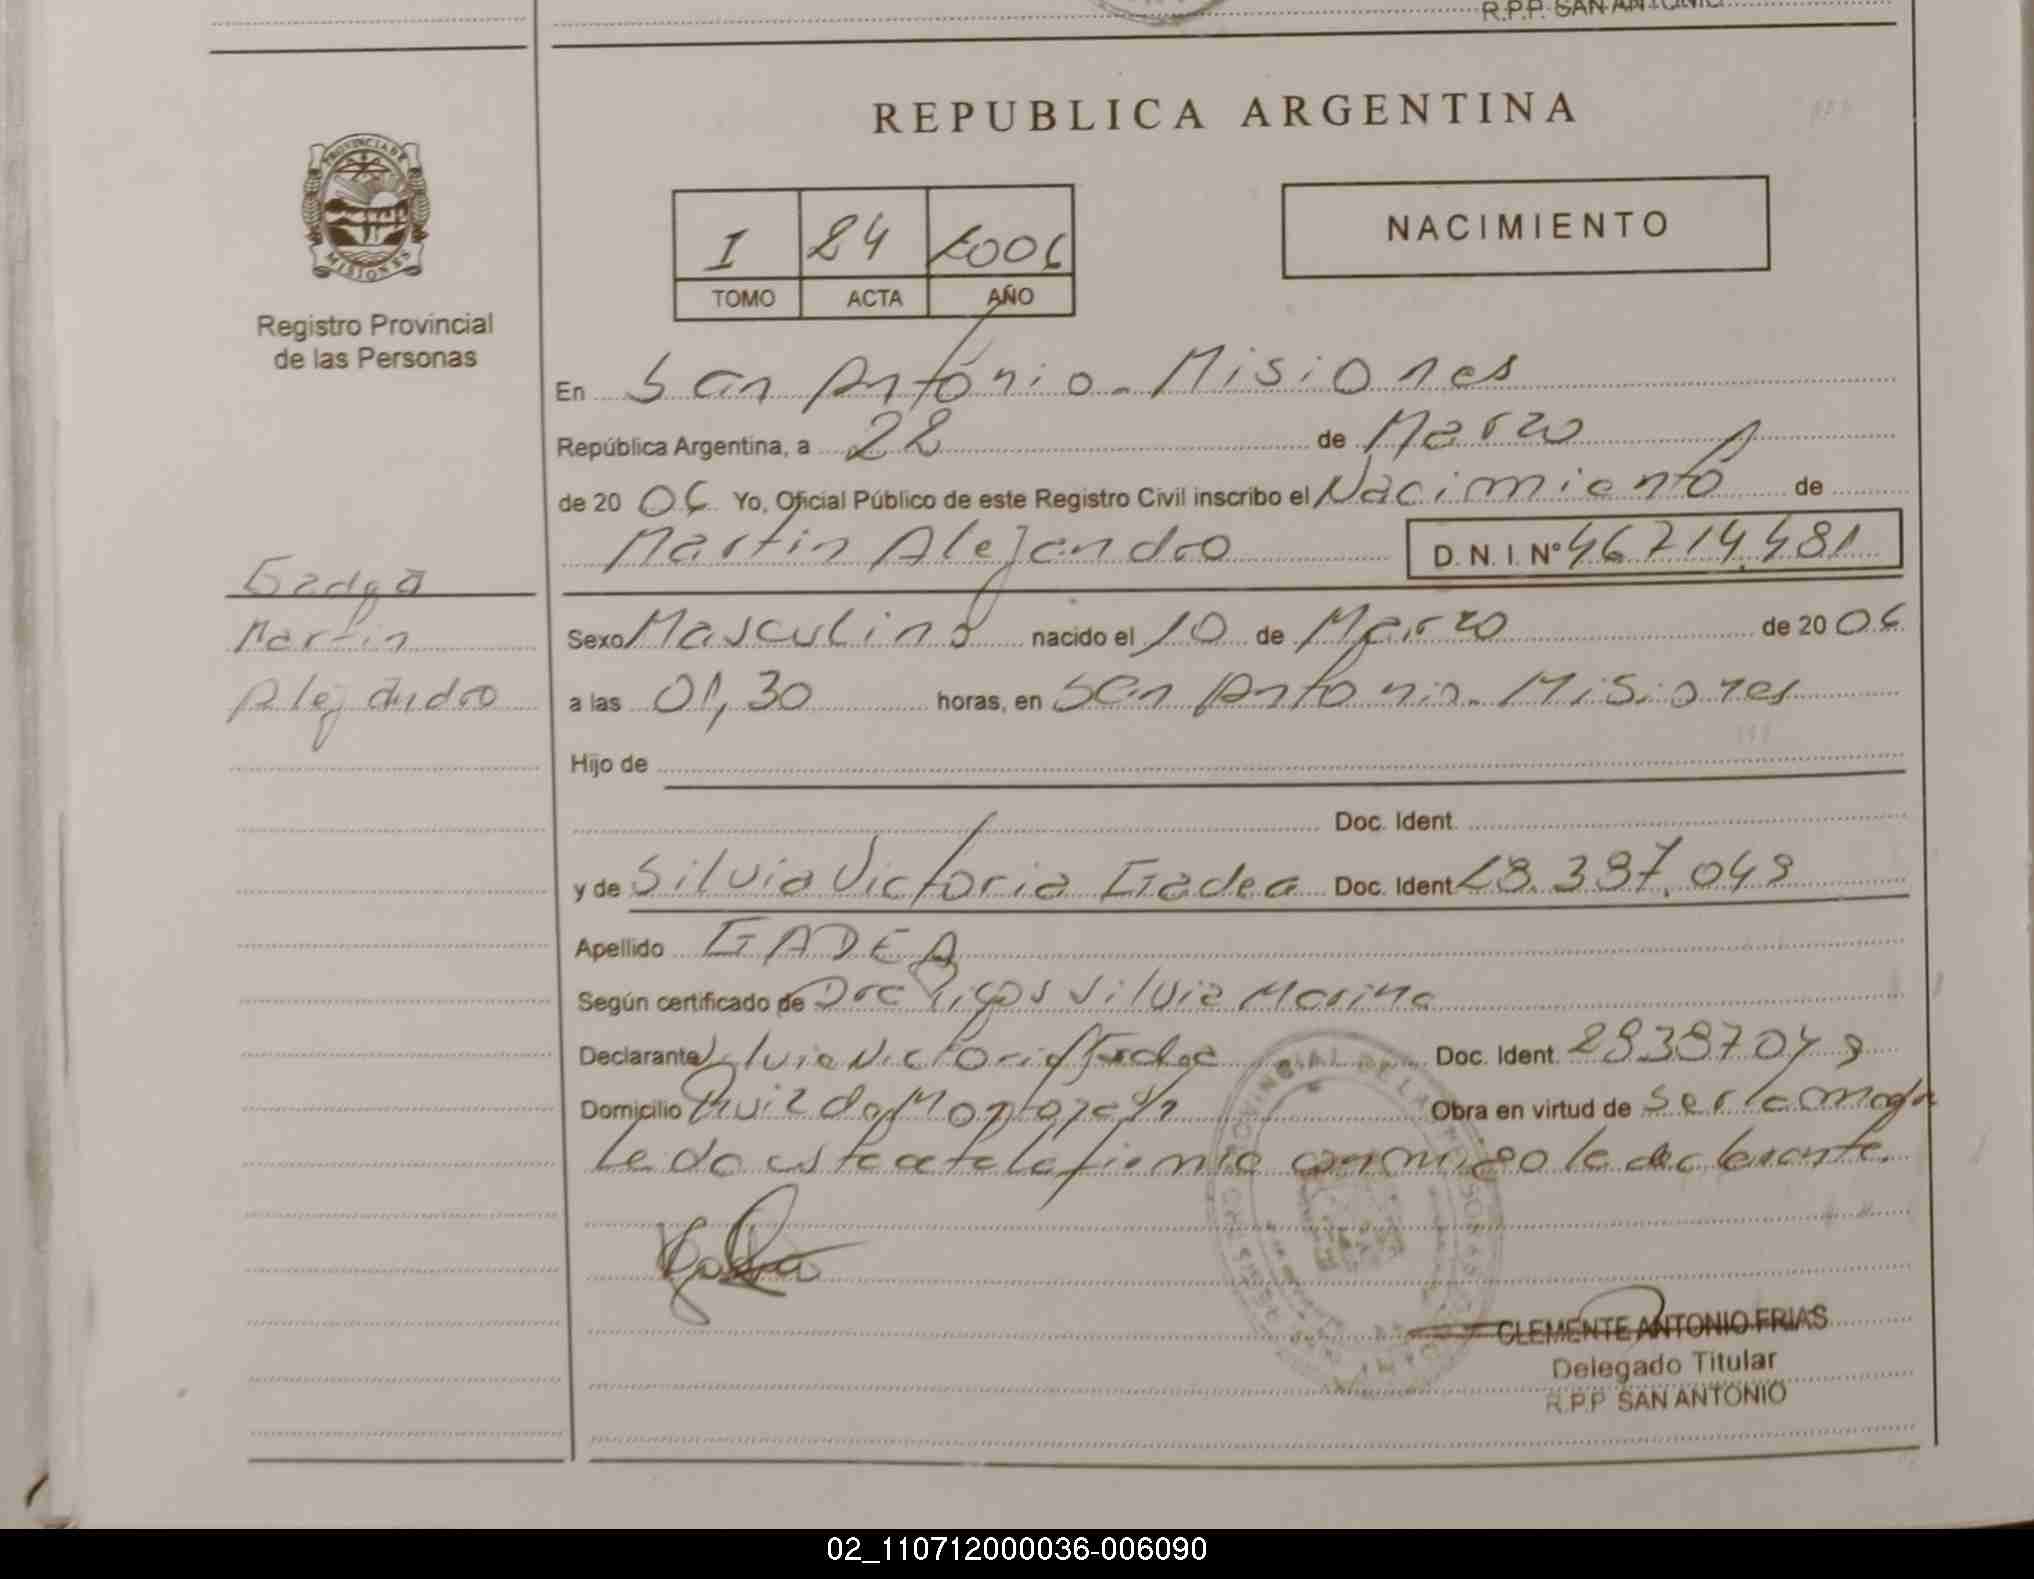 R.P.P. SAN ANTONIO
REPUBLICA ARGENTINA
PROVINCIA DE
MISIONES
Registro Provincial
de las Personas
I 24 2006
TOMO ACTA AÑO
NACIMIENTO
En San Antonio - Misiones
República Argentina, a 22 de Marzo
de 20 06 Yo, Oficial Público de este Registro Civil inscribo el Nacimiento de
Martin Alejandro D. N. I. N° 46.714.481
Gadea
Martin
Alejandro
Sexo Masculino nacido el 10 de Marzo de 20 06
a las 01,30 horas, en San Antonio - Misiones
Hijo de
Doc. Ident.
y de Silvia Victoria Gadea Doc. Ident 28.397.049
Apellido GADEA
Según certificado de Dra Silvia Marina
Declarante Silvia Victoria Gadea Doc. Ident. 28397049
Domicilio Ruiz de Montoya Obra en virtud de ser la madre
Leida esta acta la firma conmigo la declarante.
CLEMENTE ANTONIO FRIAS
Delegado Titular
R.P.P SAN ANTONIO
02_110712000036-006090